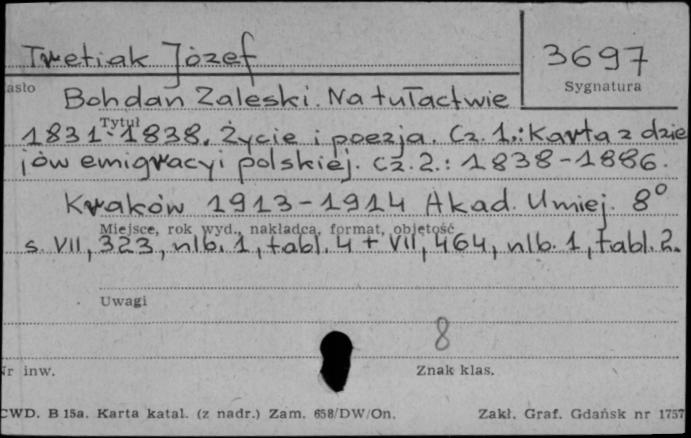 Tretiak Józef
3697
asło
Sygnatura
Bohdan Zaleski. Na tułactwie
Tytuł
1831-1838. Życie i poezja. Cz. 1.: Karta z dzie
jów emigracyi polskiej. Cz. 2.: 1838-1886.
Kraków 1913-1914 Akad. Umiej. 8°
Miejsce, rok wyd., nakładca, format, objętość
s. VII, 323, nlb. 1, tabl. 4 + VII, 464, nlb. 1, tabl. 2.
Uwagi
8
Nr inw.
Znak klas.
CWD. B 15a. Karta katal. (z nadr.) Zam. 658/DW/On.
Zakł. Graf. Gdańsk nr 1757